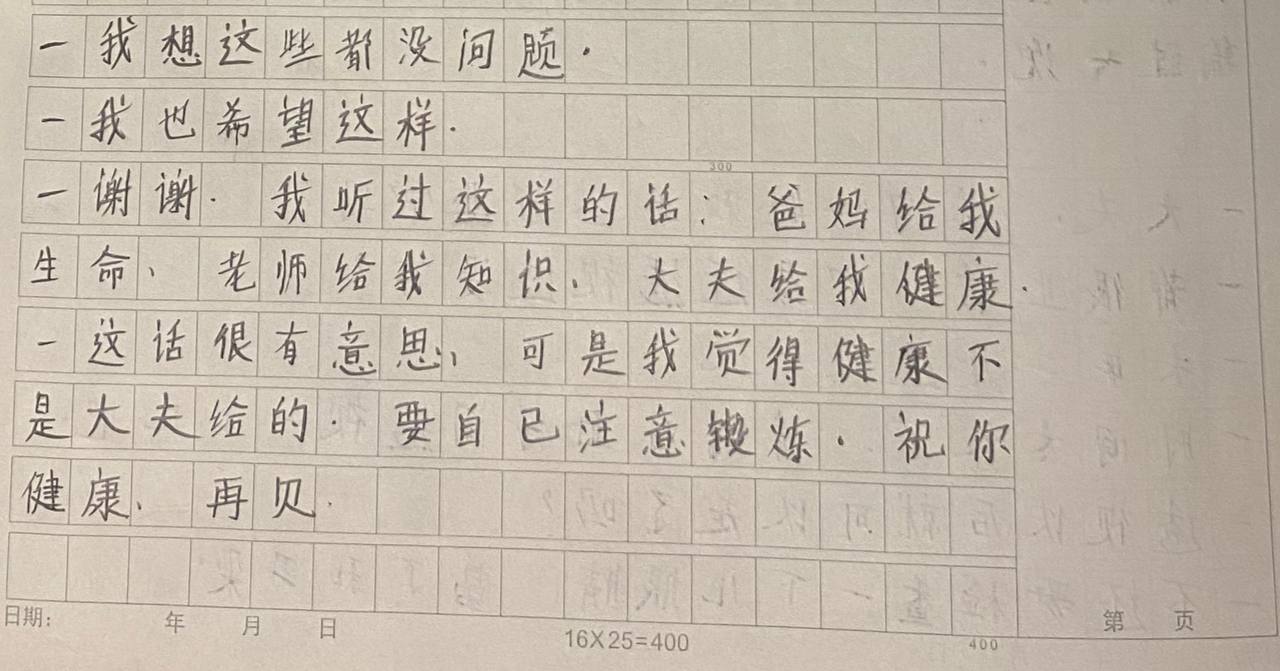 一我想这些都没问题.
一我也希望这样.
300
一谢谢. 我听过这样的话: 爸妈给我
生命、老师给我知识、大夫给我健康.
一这话很有意思, 可是我觉得健康不
是大夫给的. 要自已注意锻炼. 祝你
健康、再贝.
日期: 年 月 日
16X25=400
400
第 页